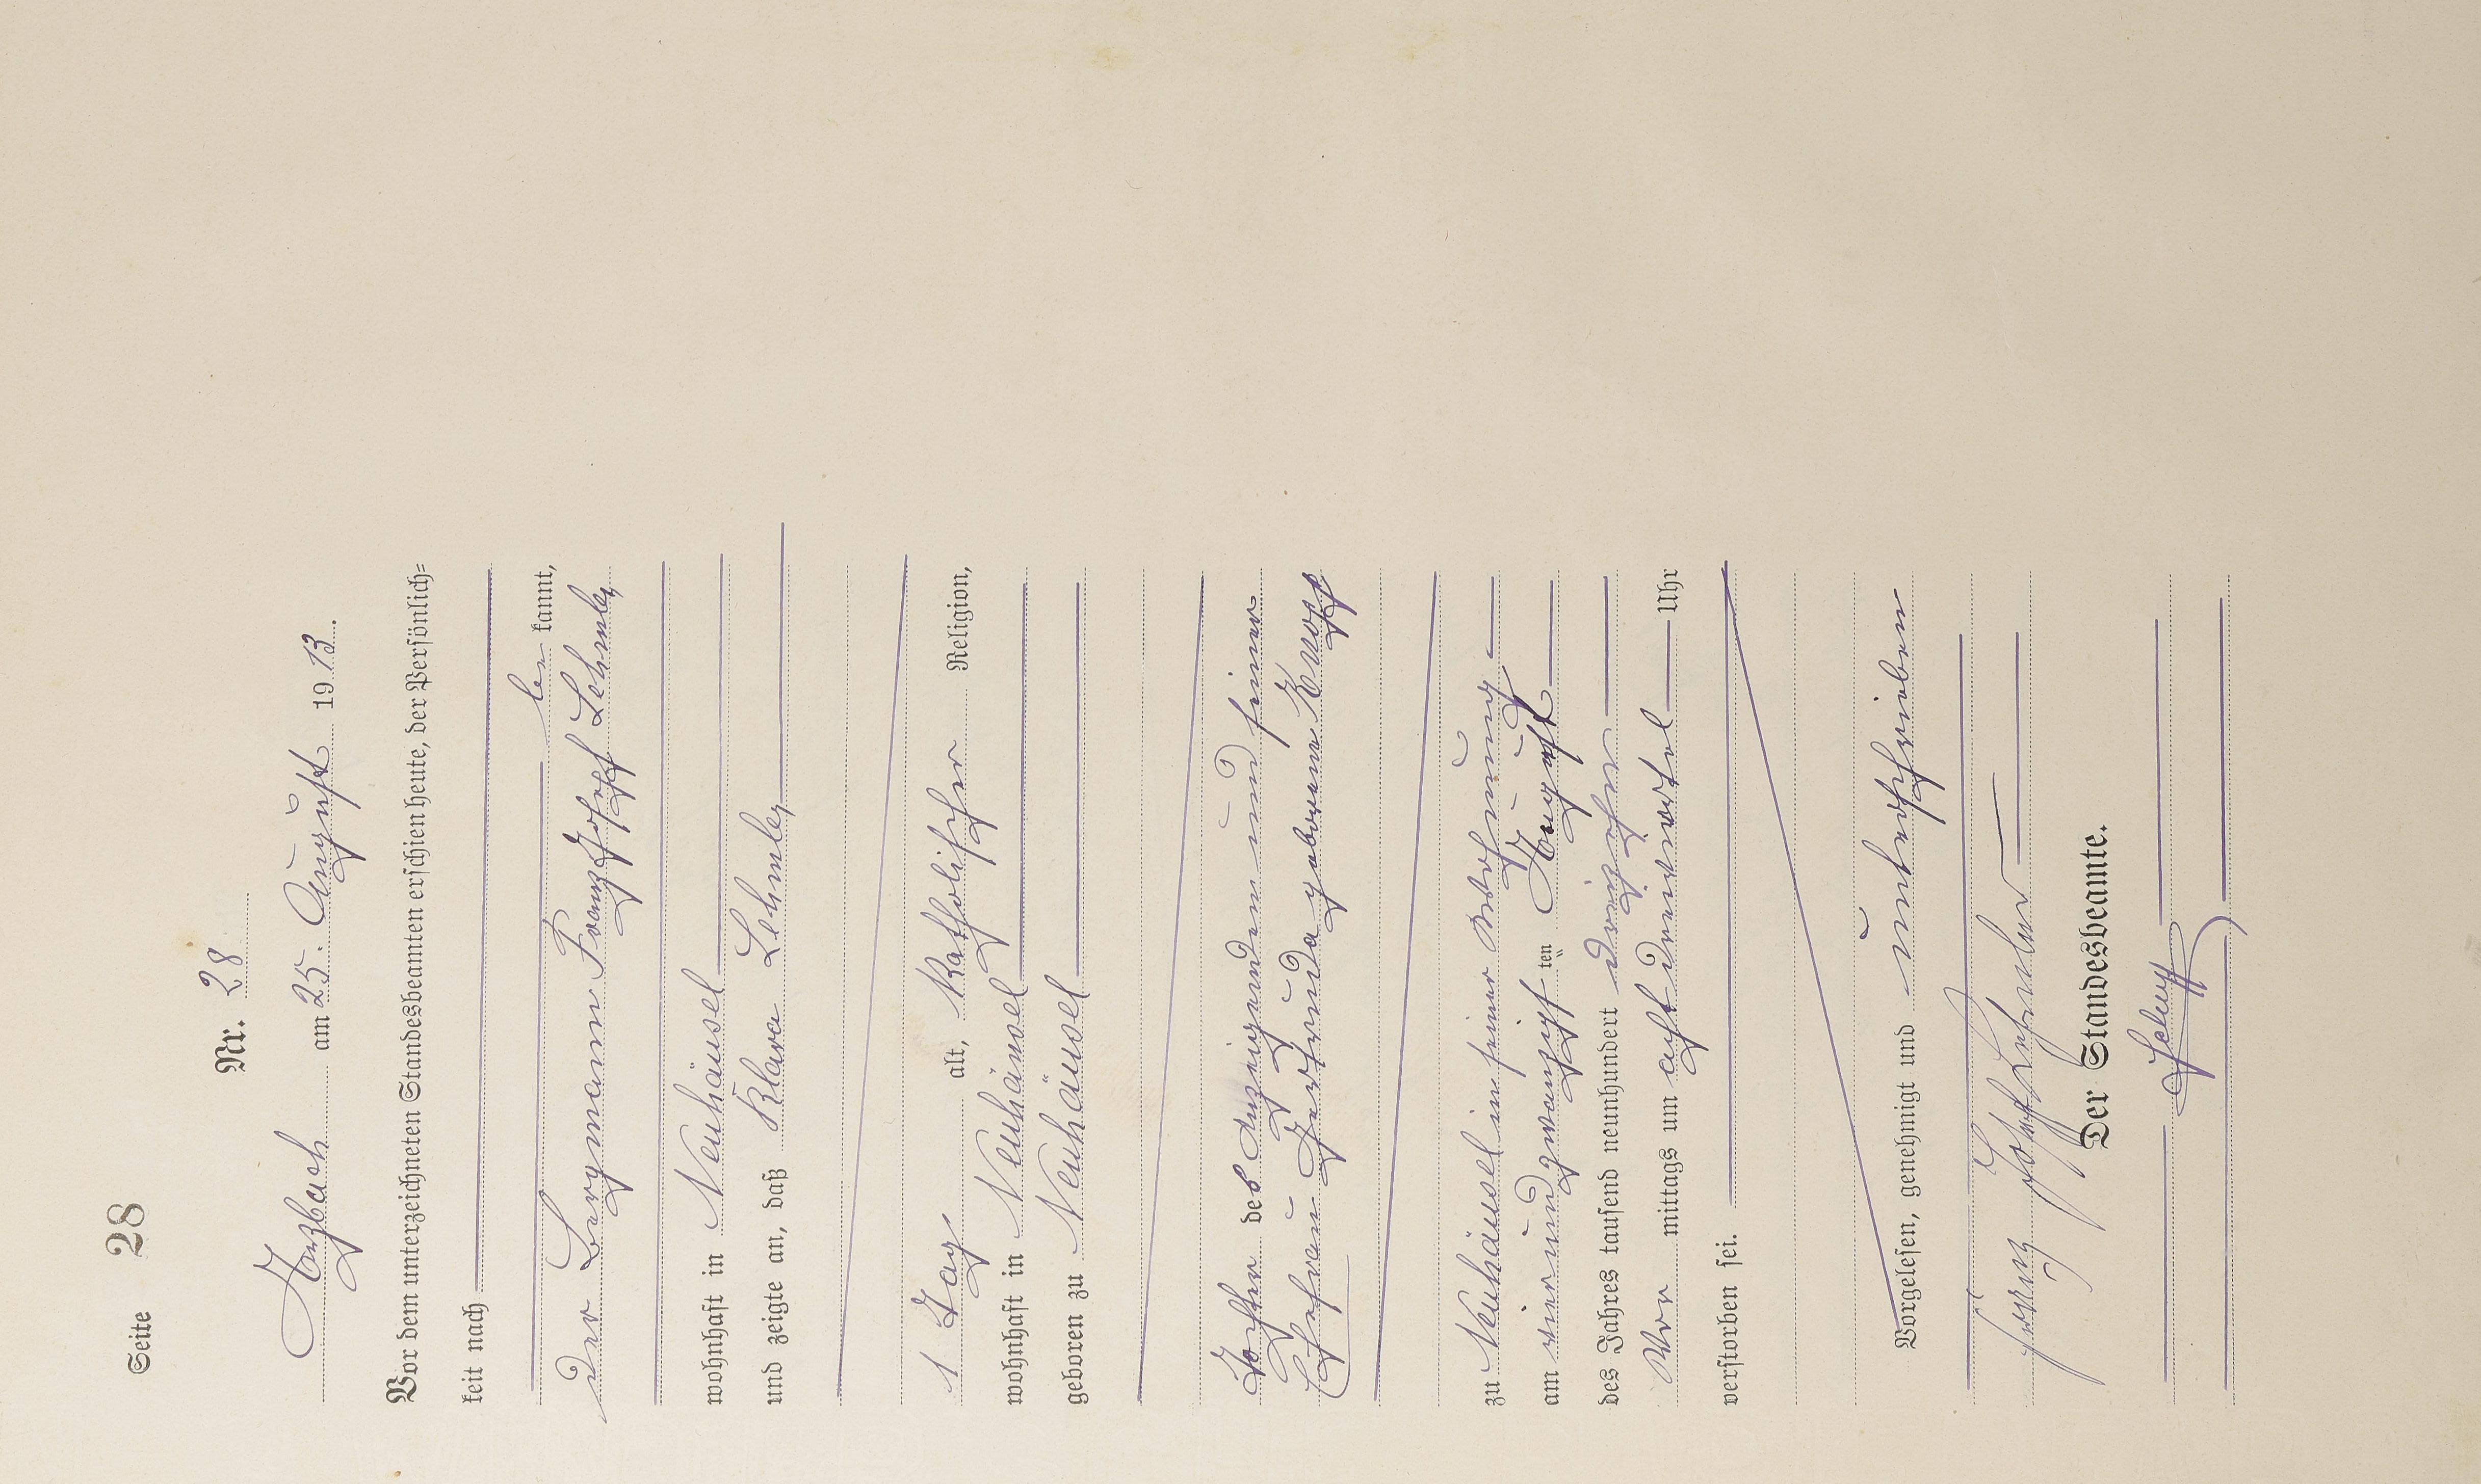 Seite 28
Nr. 28
Arzbach am 25. August 1913.
Vor dem unterzeichneten Standesbeamten erschien heute, der Persönlich=
keit nach
be kannt,
der Bergmann Franz Josef Lehmler
wohnhaft in Neuhäusel
und zeigte an, daß Klara Lehmler
1 Tag alt, katholischer Religion,
wohnhaft in Neuhäusel
geboren zu Neuhäusel
Tochter des Anzeigenden und seiner
Ehefrau Gertruda geborene Knopp
zu Neuhäusel in seiner Wohnung
am vierundzwanzigsten August
des Jahres tausend neunhundert dreizehn
Vor mittags um acht dreiviertel Uhr
verstorben sei.
Vorgelesen, genehmigt und unterschrieben
Franz Josef Lehmler
Der Standesbeamte.